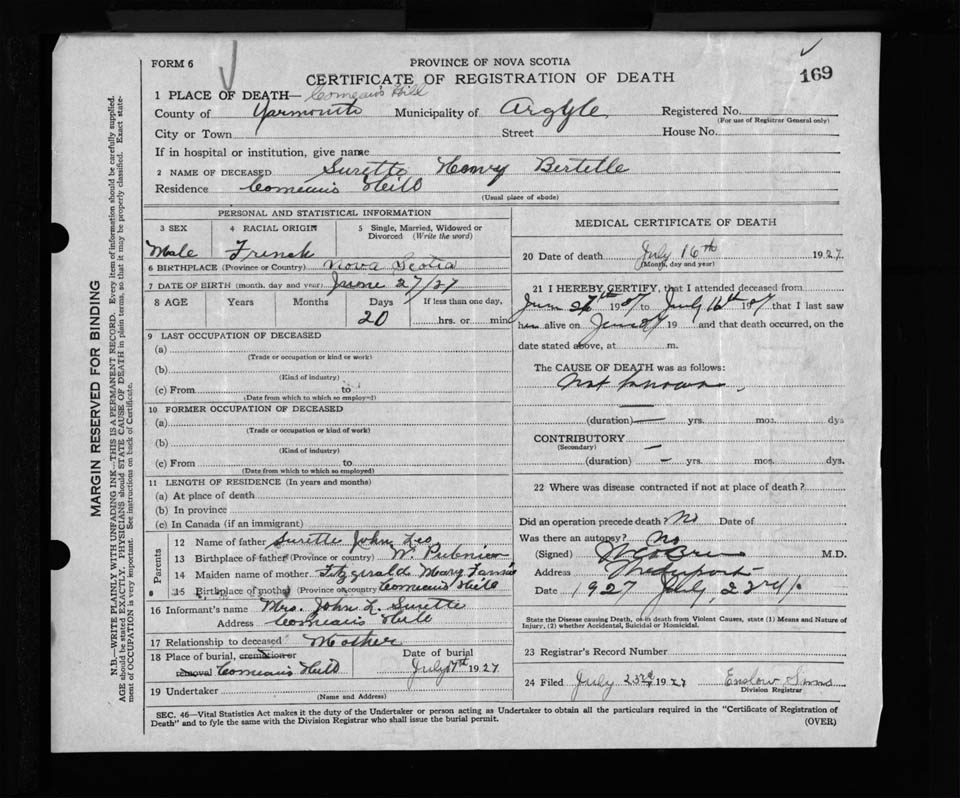 FORM 6
PROVINCE OF NOVA SCOTIA
CERTIFICATE OF REGISTRATION OF DEATH
169
1 PLACE OF DEATH— Comeau's Hill
County of Yarmouth Municipality of Argyle Registered No.
(For use of Registrar General only)
City or Town Street House No.
If in hospital or institution, give name
2 NAME OF DECEASED Surette Henry Bertelle
Residence Comeau's Hill
(Usual place of abode)
PERSONAL AND STATISTICAL INFORMATION
3 SEX 4 RACIAL ORIGIN 5 Single, Married, Widowed or Divorced (Write the word)
Male French
6 BIRTHPLACE (Province or Country) Nova Scotia
7 DATE OF BIRTH (month, day and year) June 27/27
8 AGE Years Months Days If less than one day,
20 hrs. or min.
9 LAST OCCUPATION OF DECEASED
(a)
(Trade or occupation or kind of work)
(b)
(Kind of industry)
(c) From to
(Date from which to which so employed)
10 FORMER OCCUPATION OF DECEASED
(a)
(Trade or occupation or kind of work)
(b)
(Kind of industry)
(c) From to
(Date from which to which so employed)
11 LENGTH OF RESIDENCE (In years and months)
(a) At place of death
(b) In province
(c) In Canada (if an immigrant)
Parents
12 Name of father Surette John Leo
13 Birthplace of father (Province or country) W. Pubnico
14 Maiden name of mother Fitzgerald Mary Fannie
15 Birthplace of mother (Province or country) Comeau's Hill
16 Informant's name Mrs. John L. Surette
Address Comeau's Hill
17 Relationship to deceased Mother
18 Place of burial, cremation or removal Comeau's Hill Date of burial July 17th 1927
19 Undertaker
(Name and Address)
MEDICAL CERTIFICATE OF DEATH
20 Date of death July 16th 1927
(Month, day and year)
21 I HEREBY CERTIFY, that I attended deceased from
June 27th 1927 to July 16th 1927 that I last saw
him alive on June 27 19 and that death occurred, on the
date stated above, at m.
The CAUSE OF DEATH was as follows:
Not known
(duration) yrs. mos. dys
CONTRIBUTORY —
(Secondary)
(duration) — yrs. mos. dys.
22 Where was disease contracted if not at place of death?
Did an operation precede death? No Date of
Was there an autopsy? No
(Signed) M.D.
Address
Date 1927 July 23rd
State the Disease causing Death, or in death from Violent Causes, state (1) Means and Nature of
Injury, (2) whether Accidental, Suicidal or Homicidal.
23 Registrar's Record Number
24 Filed July 23rd 1927 Enslow
Division Registrar
SEC. 46—Vital Statistics Act makes it the duty of the Undertaker or person acting as Undertaker to obtain all the particulars required in the "Certificate of Registration of
Death" and to fyle the same with the Division Registrar who shall issue the burial permit.
(OVER)
MARGIN RESERVED FOR BINDING
N.B.—WRITE PLAINLY WITH UNFADING INK—THIS IS A PERMANENT RECORD. Every item of information should be carefully supplied.
AGE should be stated EXACTLY. PHYSICIANS should STATE CAUSE OF DEATH in plain terms, so that it may be properly classified. Exact statement of OCCUPATION is very important. See instructions on back of Certificate.